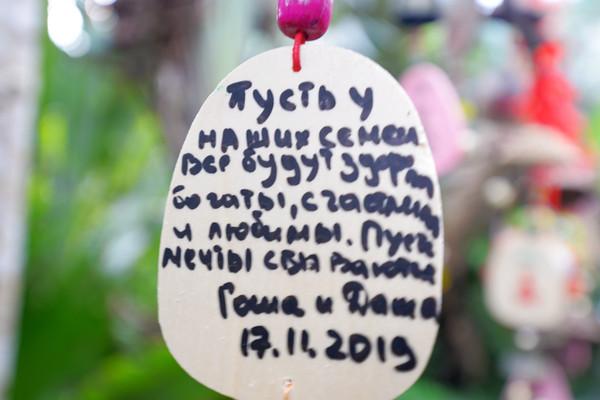 Пусть у
наших семей
все будут здоровы
богаты, счастливы
и любимы. Пусть
мечты сбываются
Гоша и Даша
17.11.2019